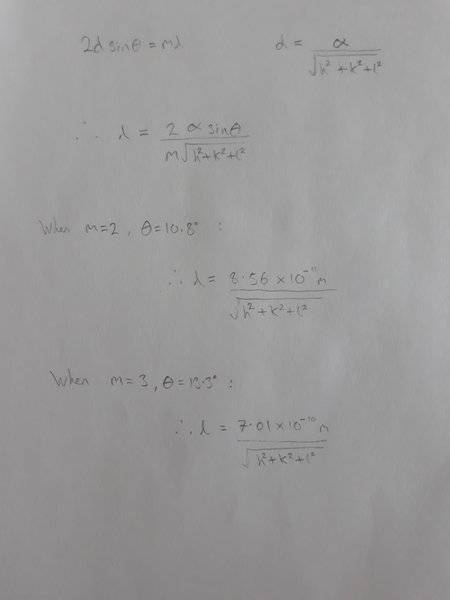 2d sinθ = mλ    d = α / √(h² + k² + l²)
∴ λ = 2 α sinθ / m√(h² + k² + l²)
When m = 2, θ = 10.8° :
∴ λ = 8.56 × 10⁻¹¹ m / √(h² + k² + l²)
When m = 3, θ = 13.3° :
∴ λ = 7.01 × 10⁻¹⁰ m / √(h² + k² + l²)